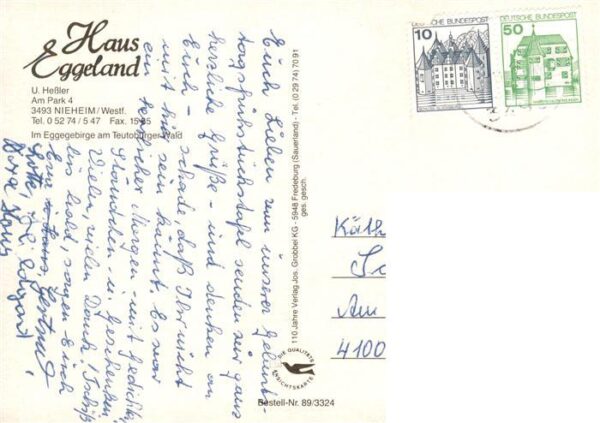 Haus
Eggeland
U. Heßler
Am Park 4
3493 NIEHEIM/Westf.
Tel. 0 52 74 / 5 47 Fax. 15 85
Im Eggegebirge am Teutoburger Wald
Euch Lieben von unserer Geburts-
tagsfrühstückstafel senden wir ganz
herzliche Grüße - und denken an
Euch - schade, daß Ihr nicht
mit hier sein könnt. Es war
ein herrlicher Morgen - mit Gedichten,
Ständchen - u. Geschenken.
Vielen, vielen Dank! Tschüß
bis bald, sorgen Euch
Eure Gertrud
Lotte,
110 Jahre Verlag Jos. Grobbel KG - 5948 Fredeburg (Sauerland) - Tel. (0 29 74) 70 91
ges. gesch.
DIE QUALITÄTS
ANSICHTSKARTE
Bestell-Nr. 89/3324
DEUTSCHE BUNDESPOST
10
DEUTSCHE BUNDESPOST
50
Käth
Am
4100